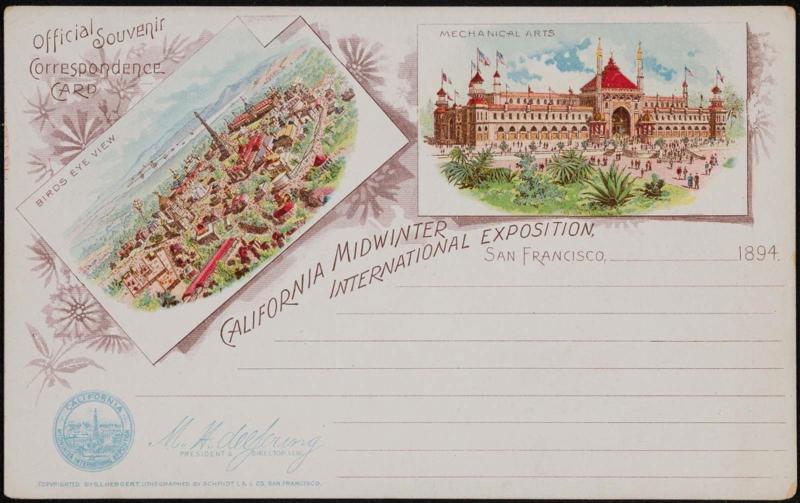 Official Souvenir
Correspondence
Card
BIRDS EYE VIEW
MECHANICAL ARTS
CALIFORNIA MIDWINTER
INTERNATIONAL EXPOSITION,
SAN FRANCISCO, 1894.
CALIFORNIA
MIDWINTER INTERNATIONAL EXPOSITION
M. H. de Young
PRESIDENT & DIRECTOR GENL.
COPYRIGHTED BY LITHOGRAPHED BY SCHMIDT L. & L. CO. SAN FRANCISCO.